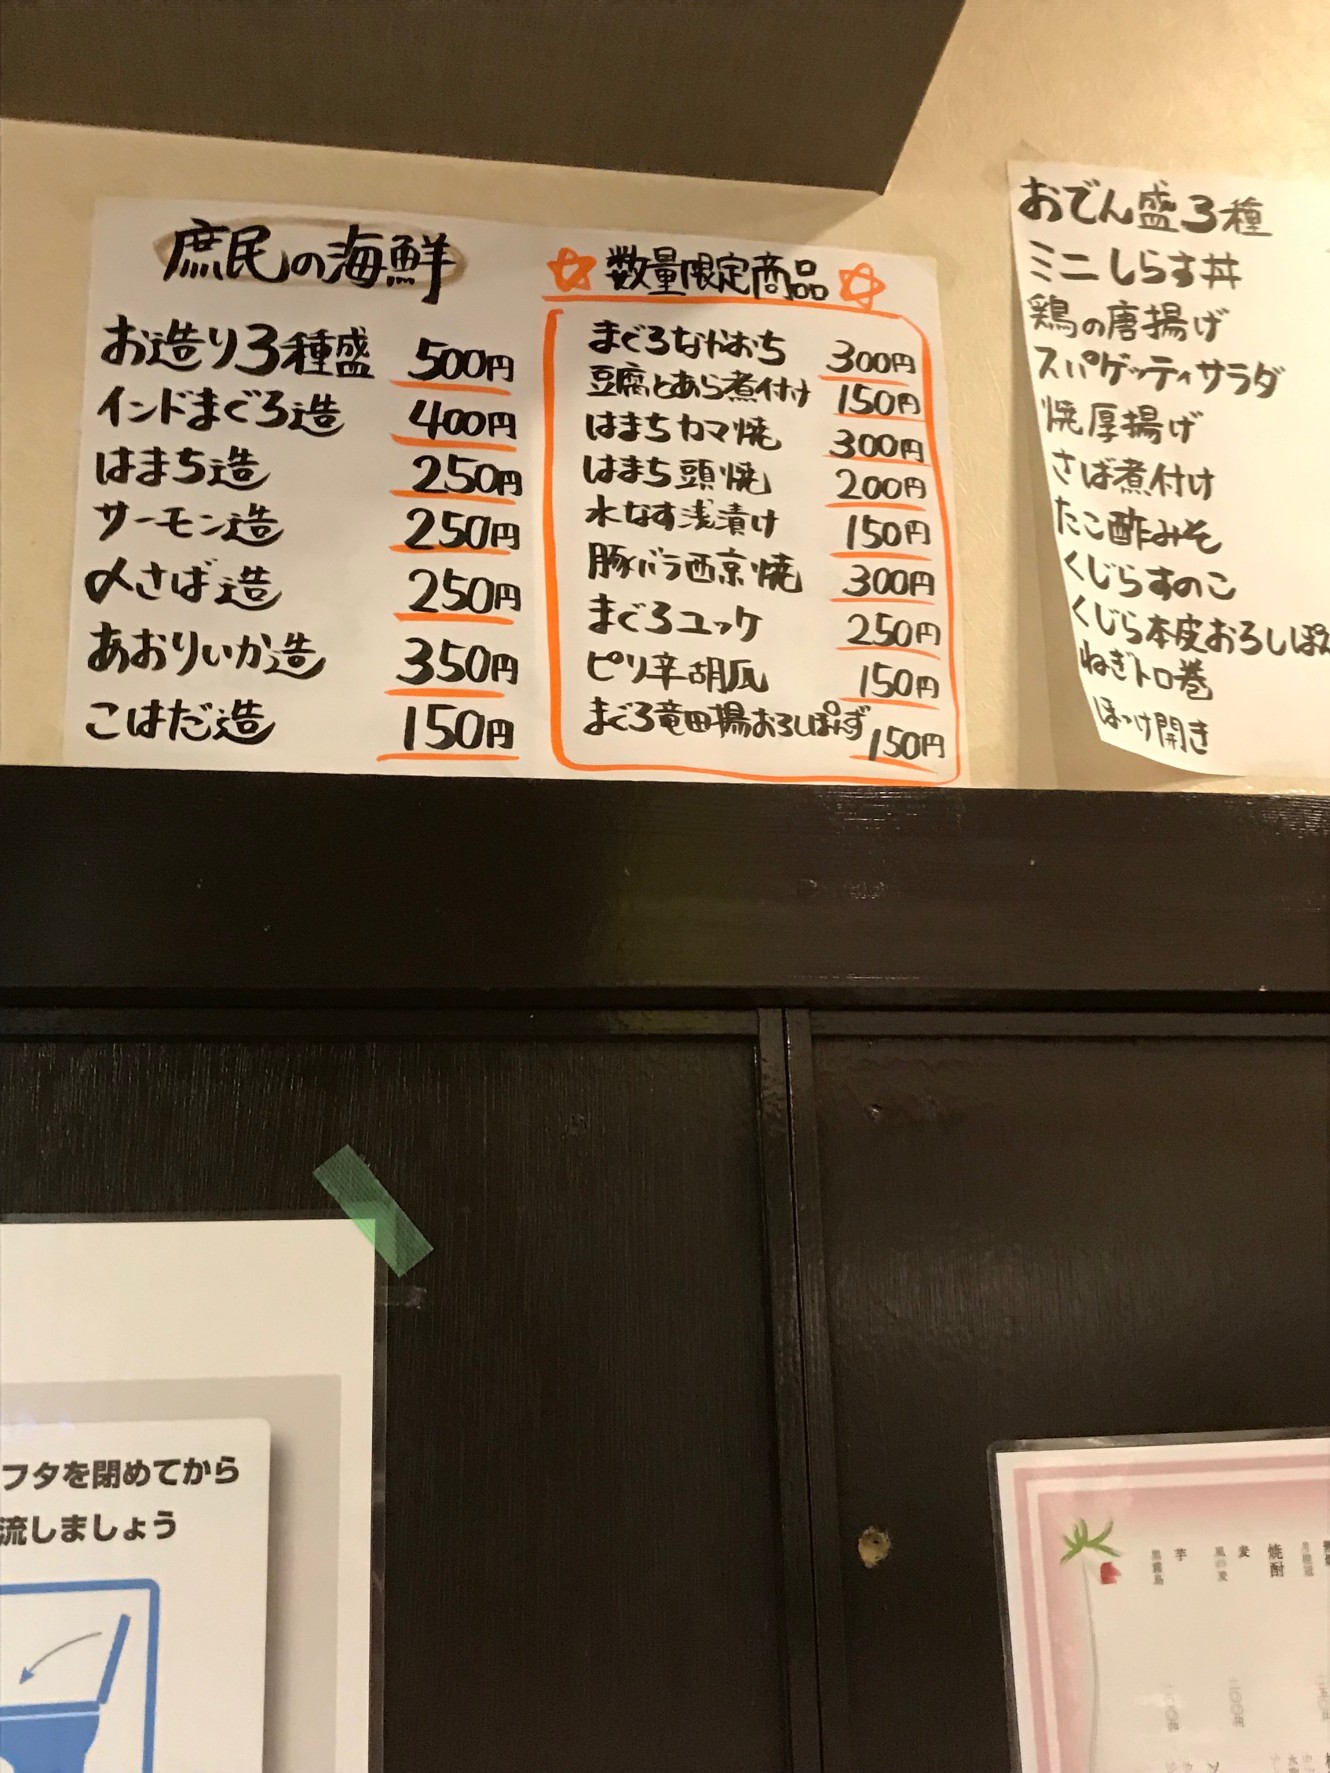 庶民の海鮮
お造り3種盛 500円
インドまぐろ造 400円
はまち造 250円
サーモン造 250円
〆さば造 250円
あおりいか造 350円
こはだ造 150円
数量限定商品
まぐろなかおち 300円
豆腐とあら煮付け 150円
はまちカマ焼 300円
はまち頭焼 200円
水なす浅漬け 150円
豚バラ西京焼 300円
まぐろユッケ 250円
ピリ辛胡瓜 150円
まぐろ竜田揚おろしぽんず 150円
おでん盛3種
ミニしらす丼
鶏の唐揚げ
スパゲッティサラダ
焼厚揚げ
さば煮付け
たこ酢みそ
くじらすのこ
くじら本皮おろしぽん
ねぎトロ巻
ほっけ開き
フタを閉めてから
流しましょう
焼酎
麦
風の麦
芋
黒霧島